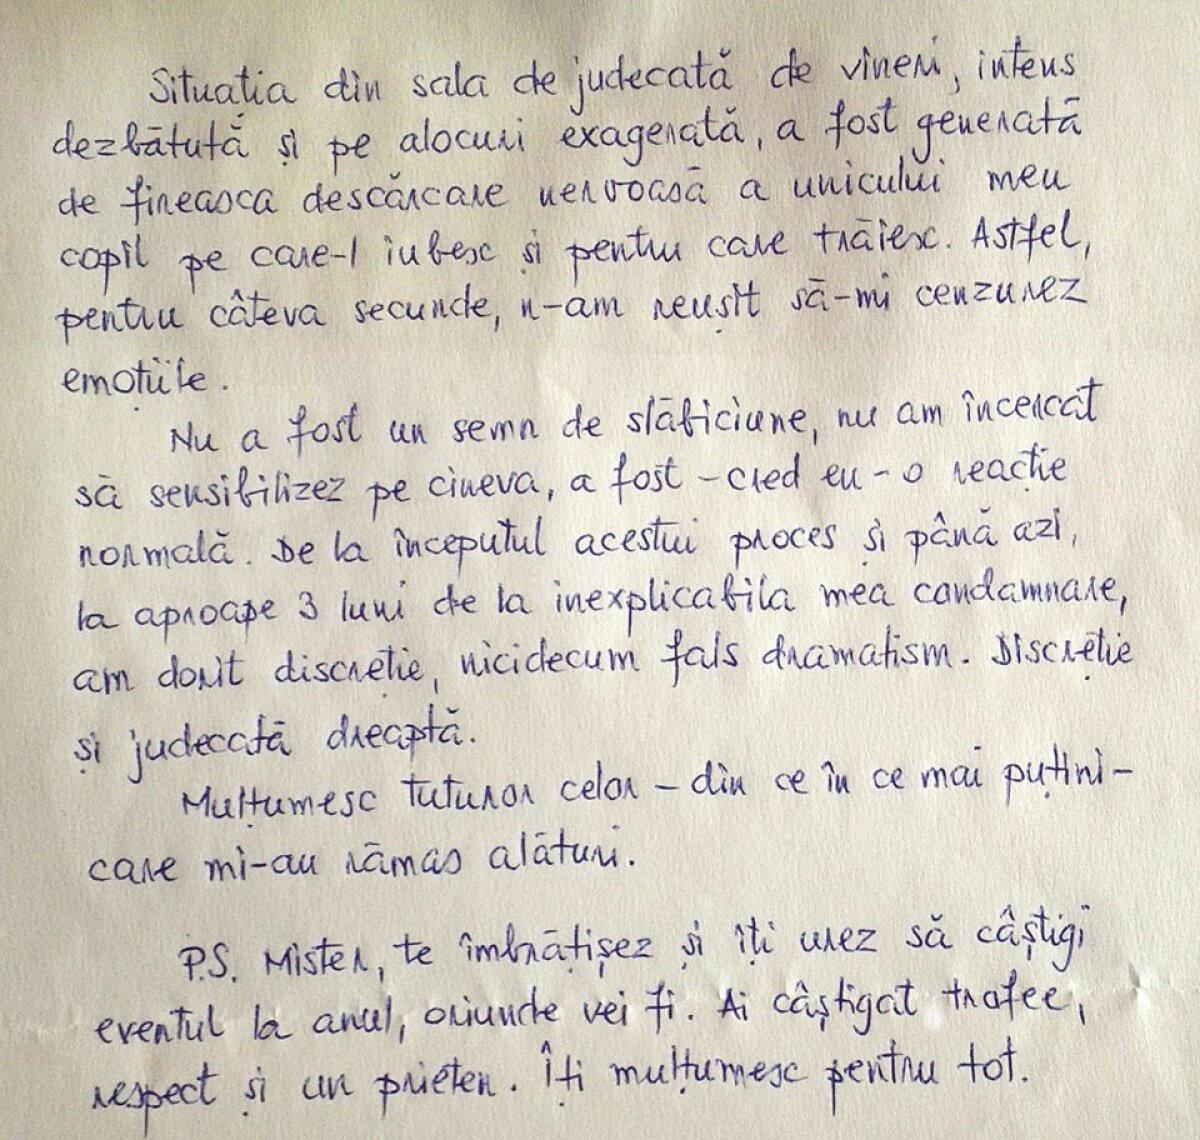 Situația din sala de judecată de vineri, intens
dezbătută și pe alocuri exagerată, a fost generată
de fireasca descărcare nervoasă a unicului meu
copil pe care-l iubesc și pentru care trăiesc. Astfel,
pentru câteva secunde, n-am reușit să-mi cenzurez
emoțiile.
Nu a fost un semn de slăbiciune, nu am încercat
să sensibilizez pe cineva, a fost – cred eu – o reacție
normală. De la începutul acestui proces și până azi,
la aproape 3 luni de la inexplicabila mea condamnare,
am dorit discreție, nicidecum fals dramatism. Discreție
și judecată dreaptă.
Mulțumesc tuturor celor – din ce în ce mai puțini –
care mi-au rămas alături.
P.S. Mister, te îmbrățișez și îți urez să câștigi
eventul la anul, oriunde vei fi. Ai câștigat trofee,
respect și un prieten. Îți mulțumesc pentru tot.